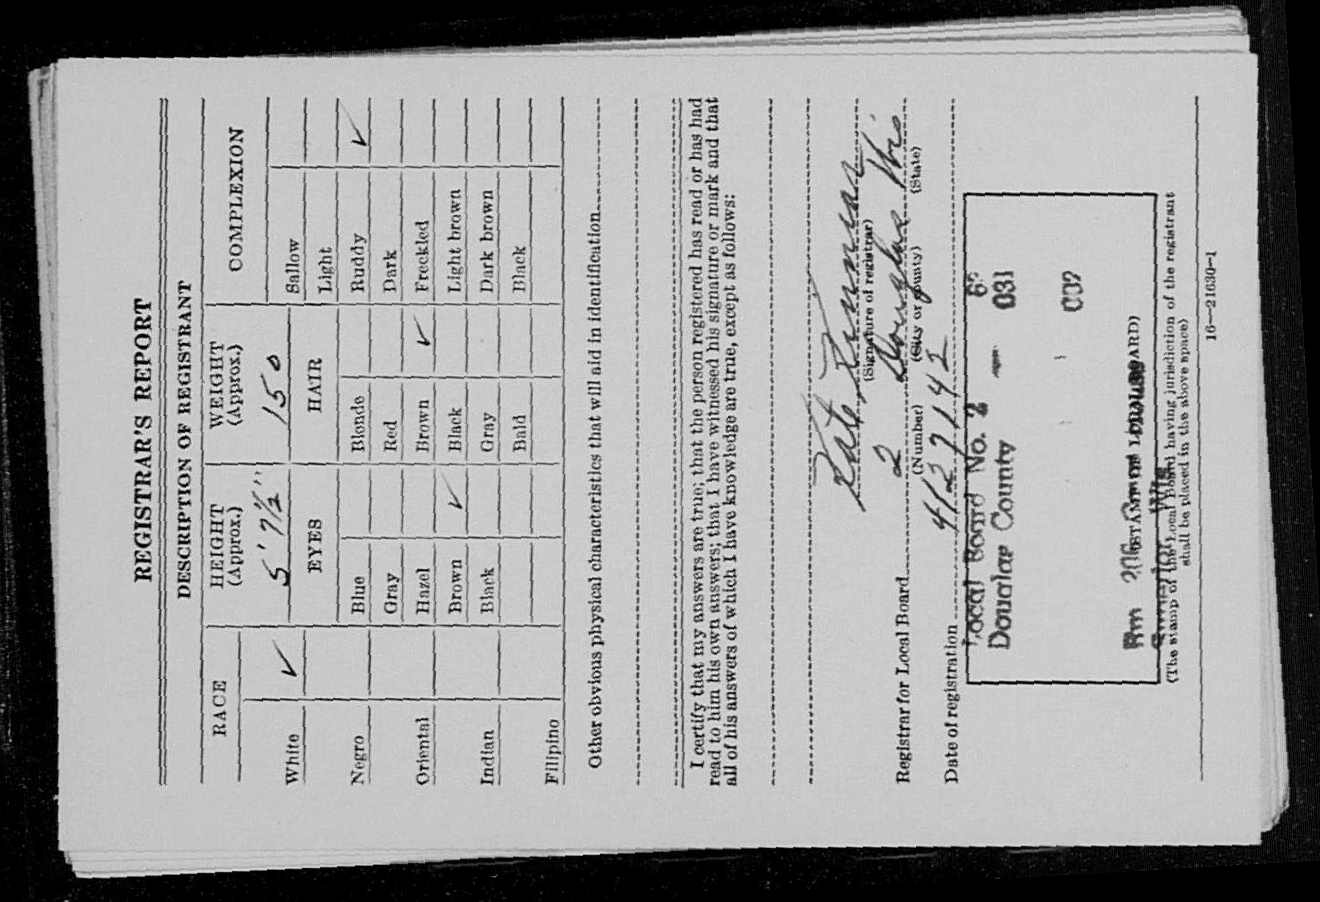 REGISTRAR'S REPORT
DESCRIPTION OF REGISTRANT
RACE HEIGHT (Approx.) WEIGHT (Approx.) COMPLEXION
White ✓ 5' 7½" 150 Sallow
EYES HAIR Light
Negro Blue Blonde Ruddy ✓
Gray Red Dark
Oriental Hazel Brown ✓ Freckled
Brown ✓ Black Light brown
Indian Black Gray Dark brown
Bald Black
Filipino
Other obvious physical characteristics that will aid in identification
I certify that my answers are true; that the person registered has read or has had
read to him his own answers; that I have witnessed his signature or mark and that
all of his answers of which I have knowledge are true, except as follows:
(Signature of registrar)
Registrar for Local Board 2 Douglas Wis
(Number) (City or county) (State)
Date of registration 4/27/42
Local Board No. 2 6
Douglas County 031
002
Rm 206
(STAMP OF LOCAL BOARD)
Wis
(The stamp of the Local Board having jurisdiction of the registrant
shall be placed in the above space)
16—21630-1